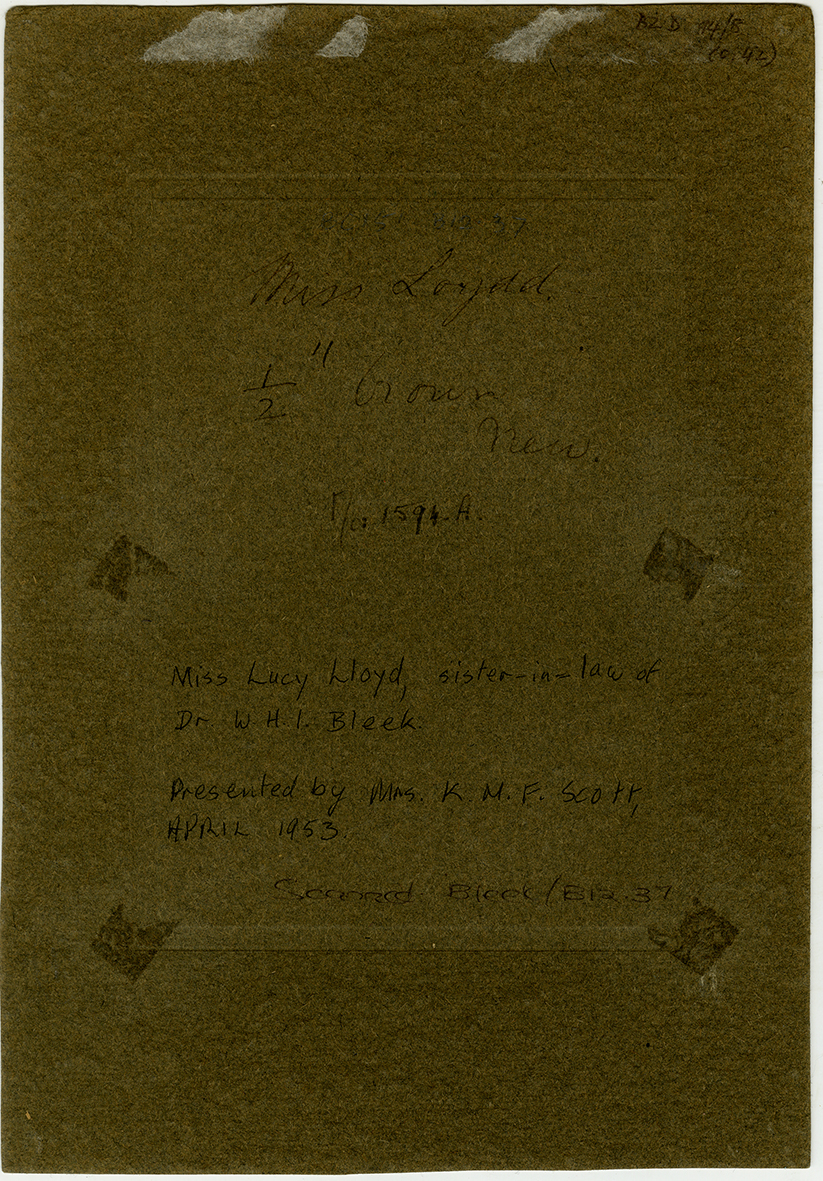 BZD
(0.42)
B19 37
Miss Loydd.
1/2 " Crown
New.
1594.A.
Miss Lucy Lloyd, sister-in-law of
Dr. W. H. I. Bleek.
Presented by Mrs. K. M. F. Scott,
APRIL 1953.
Scanned Bleek/B19.37